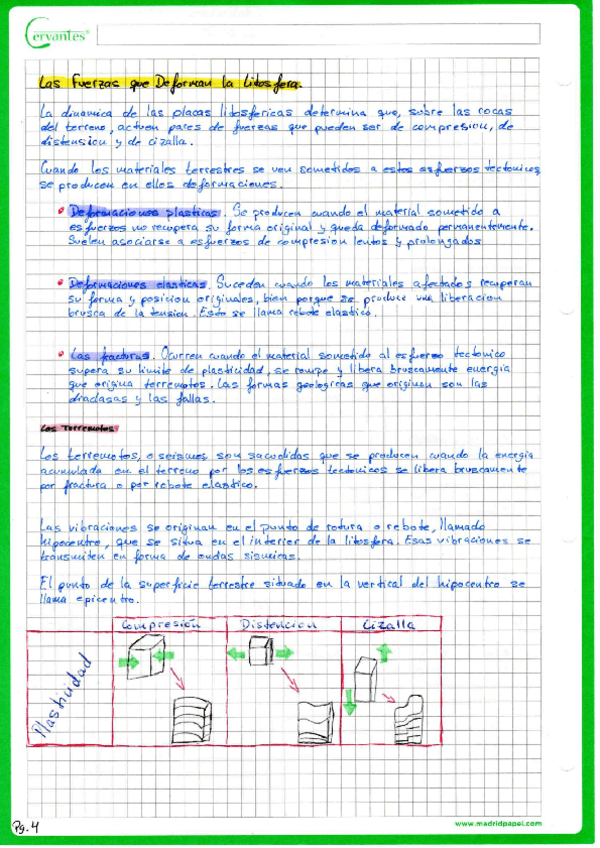 Cervantes
Las Fuerzas que Deforman la Litosfera.
La dinamica de las placas litosfericas determina que, sobre las rocas
del terreno, actuen pares de fuerzas que pueden ser de compresion, de
distension y de cizalla.
Cuando los materiales terrestres se ven sometidos a estos esfuerzos tectonicos
se producen en ellos deformaciones.
• Deformaciones plasticas. Se producen cuando el material sometido a
esfuerzos no recupera su forma original y queda deformado permanentemente.
Suelen asociarse a esfuerzos de compresion lentos y prolongados
• Deformaciones elasticas. Suceden cuando los materiales afectados recuperan
su forma y posicion originales, bien porque se produce una liberacion
brusca de la tension. Esto se llama rebote elastico.
• Las fracturas. Ocurren cuando el material sometido al esfuerzo tectonico
supera su limite de plasticidad, se rompe y libera bruscamente energia
que origina terremotos. Las formas geologicas que originan son las
diaclasas y las fallas.
Los Terremotos
Los terremotos, o seismos son sacudidas que se producen cuando la energia
acumulada en el terreno por los esfuerzos tectonicos se libera bruscamente
por fractura o por rebote elastico.
Las vibraciones se originan en el punto de rotura o rebote, llamado
hipocentro, que se situa en el interior de la litosfera. Esas vibraciones se
transmiten en forma de ondas sismicas.
El punto de la superficie terrestre situado en la vertical del hipocentro se
llama epicentro.
Compresión Distencion Cizalla
Plasticidad
www.madridpapel.com
Pg. 4